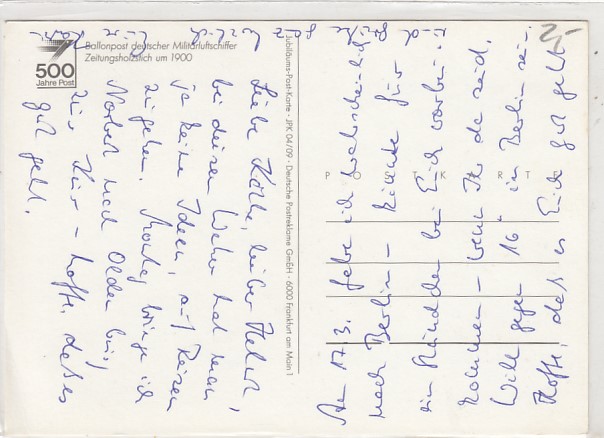 500
Jahre Post
Ballonpost deutscher Militärluftschiffer
Zeitungsholzstich um 1900
Jubiläums-Post-Karte · JPK 04/09 · Deutsche Postreklame GmbH · 6000 Frankfurt am Main 1
POSTKARTE
Liebe Käthe, lieber Helmut,
bei diesem Wetter hat man
ja keine Ideen, auf Reisen
zu gehen. Montag bringe ich
Norbert nach Oldenburg
zur Kur – hoffe, daß es
gut geht.
Am 17.3. fahre ich wahrscheinlich
nach Berlin – könnte für
ein Stündchen bei Euch vorbei-
kommen – wenn Ihr da seid.
Will gegen 16 in Berlin sein.
Hoffe, daß es Euch gut geht
2,-